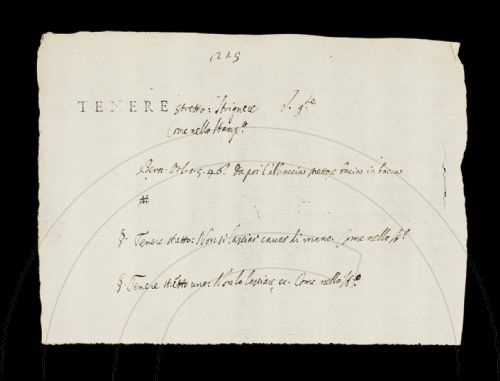 225
TENERE stretto: Strignere v. qle
Come nello Stamp.o
Bern. Orl. 1. 5. 46. Da poi l'abbraccia stretto, e bacia in bocca
#
§. Tenere stretto: Non si lasciar cavar di mano. Come nello St.o
§. Tenere stretto uno: Non lo lasciare, ec. Come nello St.o